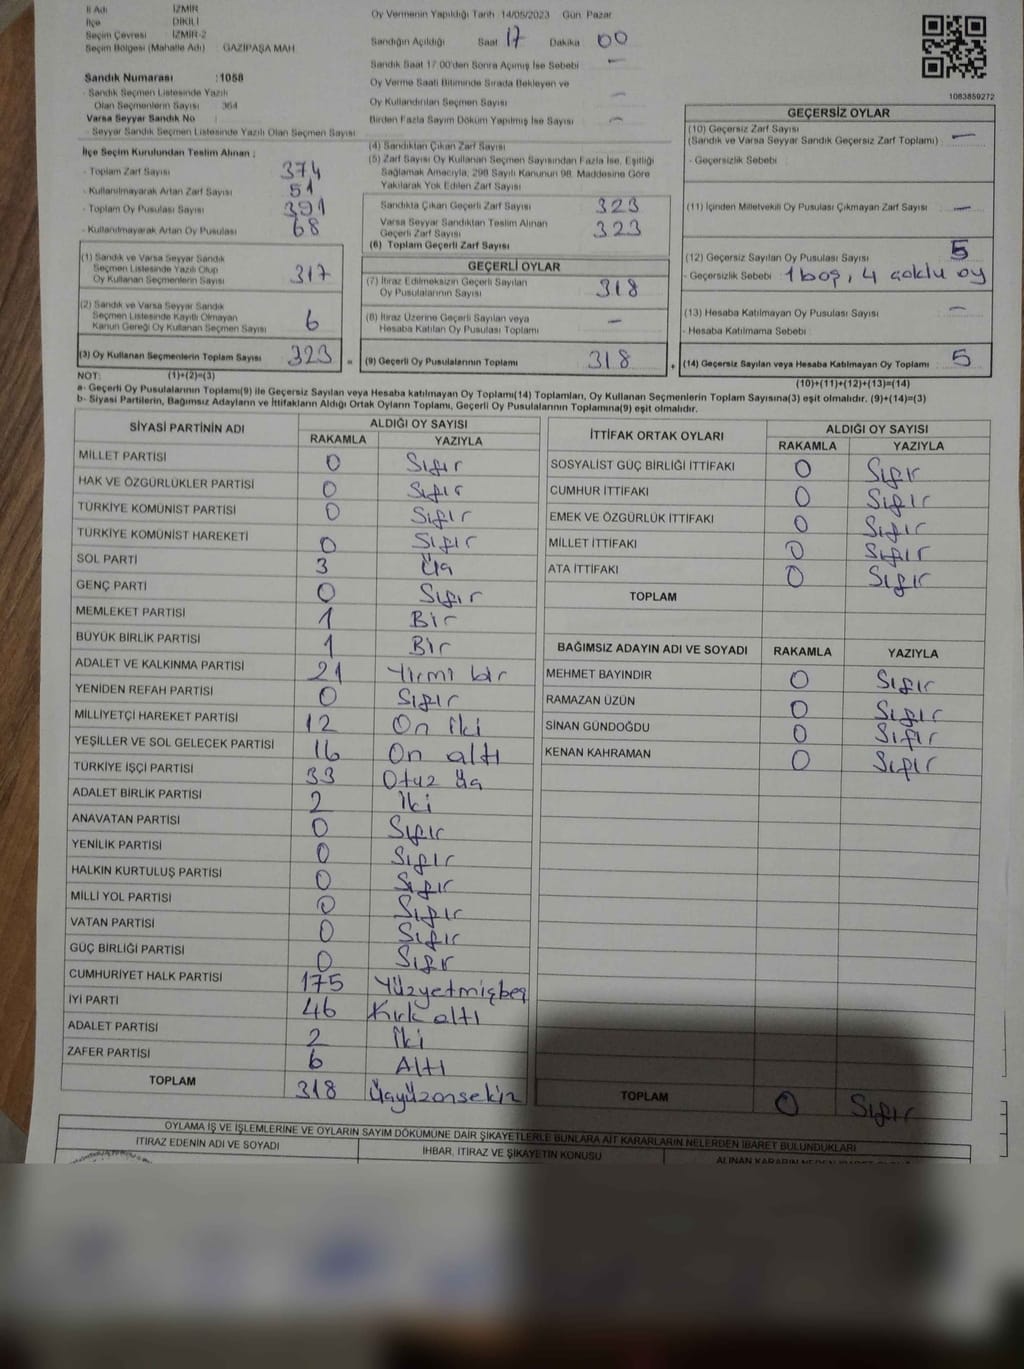 İl Adı İZMİR
İlçe DİKİLİ
Seçim Çevresi İZMİR-2
Seçim Bölgesi (Mahalle Adı) GAZİPAŞA MAH
Sandık Numarası :1058
- Sandık Seçmen Listesinde Yazılı
Olan Seçmenlerin Sayısı 364
Varsa Seyyar Sandık No :
- Seyyar Sandık Seçmen Listesinde Yazılı Olan Seçmen Sayısı
Oy Vermenin Yapıldığı Tarih 14/05/2023 Gün Pazar
Sandığın Açıldığı Saat 17 Dakika 00
Sandık Saat 17:00'den Sonra Açılmış İse Sebebi —
Oy Verme Saati Bitiminde Sırada Bekleyen ve
Oy Kullandırılan Seçmen Sayısı —
Birden Fazla Sayım Döküm Yapılmış İse Sayısı —
1083859272
İlçe Seçim Kurulundan Teslim Alınan ;
- Toplam Zarf Sayısı 374
- Kullanılmayarak Artan Zarf Sayısı 51
- Toplam Oy Pusulası Sayısı 391
- Kullanılmayarak Artan Oy Pusulası 68
(1) Sandık ve Varsa Seyyar Sandık
Seçmen Listesinde Yazılı Olup
Oy Kullanan Seçmenlerin Sayısı 317
(2) Sandık ve Varsa Seyyar Sandık
Seçmen Listesinde Kayıtlı Olmayan
Kanun Gereği Oy Kullanan Seçmen Sayısı 6
(3) Oy Kullanan Seçmenlerin Toplam Sayısı 323 =
NOT: (1)+(2)=(3)
(4) Sandıktan Çıkan Zarf Sayısı
(5) Zarf Sayısı Oy Kullanan Seçmen Sayısından Fazla İse, Eşitliği
Sağlamak Amacıyla, 298 Sayılı Kanunun 98. Maddesine Göre
Yakılarak Yok Edilen Zarf Sayısı
Sandıkta Çıkan Geçerli Zarf Sayısı 323
Varsa Seyyar Sandıktan Teslim Alınan
Geçerli Zarf Sayısı 323
(6) Toplam Geçerli Zarf Sayısı
GEÇERLİ OYLAR
(7) İtiraz Edilmeksizin Geçerli Sayılan
Oy Pusulalarının Sayısı 318
(8) İtiraz Üzerine Geçerli Sayılan veya
Hesaba Katılan Oy Pusulası Toplamı —
(9) Geçerli Oy Pusulalarının Toplamı 318 +
GEÇERSİZ OYLAR
(10) Geçersiz Zarf Sayısı
(Sandık ve Varsa Seyyar Sandık Geçersiz Zarf Toplamı) : —
- Geçersizlik Sebebi :
(11) İçinden Milletvekili Oy Pusulası Çıkmayan Zarf Sayısı —
(12) Geçersiz Sayılan Oy Pusulası Sayısı 5
- Geçersizlik Sebebi 1 boş, 4 çoklu oy
(13) Hesaba Katılmayan Oy Pusulası Sayısı —
- Hesaba Katılmama Sebebi
(14) Geçersiz Sayılan veya Hesaba Katılmayan Oy Toplamı 5
(10)+(11)+(12)+(13)=(14)
a- Geçerli Oy Pusulalarının Toplamı(9) ile Geçersiz Sayılan veya Hesaba katılmayan Oy Toplamı(14) Toplamları, Oy Kullanan Seçmenlerin Toplam Sayısına(3) eşit olmalıdır. (9)+(14)=(3)
b- Siyasi Partilerin, Bağımsız Adayların ve İttifakların Aldığı Ortak Oyların Toplamı, Geçerli Oy Pusulalarının Toplamına(9) eşit olmalıdır.
SİYASİ PARTİNİN ADI ALDIĞI OY SAYISI
RAKAMLA YAZIYLA
MİLLET PARTİSİ 0 Sıfır
HAK VE ÖZGÜRLÜKLER PARTİSİ 0 Sıfır
TÜRKİYE KOMÜNİST PARTİSİ 0 Sıfır
TÜRKİYE KOMÜNİST HAREKETİ 0 Sıfır
SOL PARTİ 3 Üç
GENÇ PARTİ 0 Sıfır
MEMLEKET PARTİSİ 1 Bir
BÜYÜK BİRLİK PARTİSİ 1 Bir
ADALET VE KALKINMA PARTİSİ 21 Yirmi bir
YENİDEN REFAH PARTİSİ 0 Sıfır
MİLLİYETÇİ HAREKET PARTİSİ 12 On iki
YEŞİLLER VE SOL GELECEK PARTİSİ 16 On altı
TÜRKİYE İŞÇİ PARTİSİ 33 Otuz üç
ADALET BİRLİK PARTİSİ 2 İki
ANAVATAN PARTİSİ 0 Sıfır
YENİLİK PARTİSİ 0 Sıfır
HALKIN KURTULUŞ PARTİSİ 0 Sıfır
MİLLİ YOL PARTİSİ 0 Sıfır
VATAN PARTİSİ 0 Sıfır
GÜÇ BİRLİĞİ PARTİSİ 0 Sıfır
CUMHURİYET HALK PARTİSİ 175 Yüzyetmişbeş
İYİ PARTİ 46 Kırk altı
ADALET PARTİSİ 2 İki
ZAFER PARTİSİ 6 Altı
TOPLAM 318 Üçyüzonsekiz
İTTİFAK ORTAK OYLARI ALDIĞI OY SAYISI
RAKAMLA YAZIYLA
SOSYALİST GÜÇ BİRLİĞİ İTTİFAKI 0 Sıfır
CUMHUR İTTİFAKI 0 Sıfır
EMEK VE ÖZGÜRLÜK İTTİFAKI 0 Sıfır
MİLLET İTTİFAKI 0 Sıfır
ATA İTTİFAKI 0 Sıfır
TOPLAM
BAĞIMSIZ ADAYIN ADI VE SOYADI RAKAMLA YAZIYLA
MEHMET BAYINDIR 0 Sıfır
RAMAZAN UZUN 0 Sıfır
SİNAN GÜNDOĞDU 0 Sıfır
KENAN KAHRAMAN 0 Sıfır
TOPLAM 0 Sıfır
OYLAMA İŞ VE İŞLEMLERİNE VE OYLARIN SAYIM DÖKÜMÜNE DAİR ŞİKAYETLERLE BUNLARA AİT KARARLARIN NELERDEN İBARET BULUNDUKLARI
İTİRAZ EDENİN ADI VE SOYADI İHBAR, İTİRAZ VE ŞİKAYETİN KONUSU